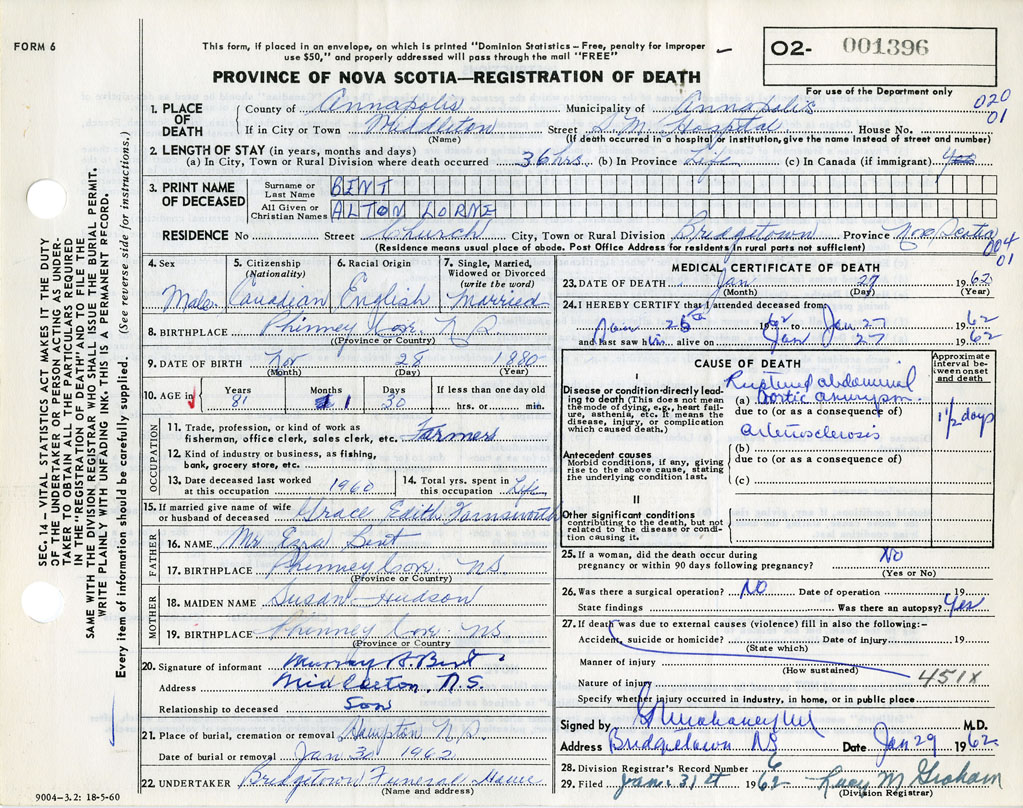 FORM 6
This form, if placed in an envelope, on which is printed "Dominion Statistics – Free, penalty for improper
use $50," and properly addressed will pass through the mail "FREE"
O2- 001396
For use of the Department only
PROVINCE OF NOVA SCOTIA—REGISTRATION OF DEATH
020
01
1. PLACE OF DEATH
County of Annapolis Municipality of Annapolis
If in City or Town Middleton Street S M Hospital House No.
(Name) (If death occurred in a hospital or institution, give the name instead of street and number)
2. LENGTH OF STAY (in years, months and days)
(a) In City, Town or Rural Division where death occurred 36 hrs. (b) In Province Life (c) In Canada (if immigrant)
3. PRINT NAME OF DECEASED
Surname or Last Name BENT
All Given or Christian Names ALTON LORNE
RESIDENCE No Street Church City, Town or Rural Division Bridgetown Province Nova Scotia
(Residence means usual place of abode. Post Office Address for residents in rural parts not sufficient)
004
01
4. Sex Male
5. Citizenship (Nationality) Canadian
6. Racial Origin English
7. Single, Married, Widowed or Divorced (write the word) Married
8. BIRTHPLACE Phinney Cove N S
(Province or Country)
9. DATE OF BIRTH Nov 28 1880
(Month) (Day) (Year)
10. AGE in Years 81 Months 1 Days 30 If less than one day old
hrs. or min.
OCCUPATION
11. Trade, profession, or kind of work as
fisherman, office clerk, sales clerk, etc. Farmer
12. Kind of industry or business, as fishing,
bank, grocery store, etc.
13. Date deceased last worked at this occupation 1960
14. Total yrs. spent in this occupation Life
15. If married give name of wife or husband of deceased Grace Edith Farnsworth
FATHER
16. NAME Mr Ezra Bent
17. BIRTHPLACE Phinney Cove NS
(Province or Country)
MOTHER
18. MAIDEN NAME Susan Hudson
19. BIRTHPLACE Phinney Cove NS
(Province or Country
20. Signature of informant Murray A. Bent
Address Middleton, N.S.
Relationship to deceased Son
21. Place of burial, cremation or removal Hampton N.S.
Date of burial or removal Jan 30 1962
22. UNDERTAKER Bridgetown Funeral Home
(Name and address)
9004-3.2: 18-5-60
MEDICAL CERTIFICATE OF DEATH
23. DATE OF DEATH Jan 27 1962
(Month) (Day) (Year)
24. I HEREBY CERTIFY that I attended deceased from
Jan 26th 1962 to Jan 27 1962
and last saw him alive on Jan 27 1962
CAUSE OF DEATH
Approximate interval between onset and death
I
Disease or condition directly leading to death (This does not mean the mode of dying, e.g., heart failure, asthenia, etc. It means the disease, injury, or complication which caused death.)
Ruptured abdominal
(a) Aortic aneurysm
due to (or as a consequence of)
Arteriosclerosis
1 1/2 days
Antecedent causes
Morbid conditions, if any, giving rise to the above cause, stating the underlying condition last.
(b)
due to (or as a consequence of)
(c)
II
Other significant conditions
contributing to the death, but not related to the disease or condition causing it.
25. If a woman, did the death occur during
pregnancy or within 90 days following pregnancy? No
(Yes or No)
26. Was there a surgical operation? NO Date of operation 19
State findings Was there an autopsy? Yes
27. If death was due to external causes (violence) fill in also the following:-
Accident, suicide or homicide? Date of injury 19
(State which)
Manner of injury
(How sustained)
Nature of injury
451X
Specify whether injury occurred in industry, in home, or in public place
Signed by M.D.
Address Bridgetown NS Date Jan 29 1962
28. Division Registrar's Record Number 6
29. Filed Jan. 31st 1962 Lucy M. Graham
(Division Registrar)
SEC. 14 – VITAL STATISTICS ACT MAKES IT THE DUTY
OF THE UNDERTAKER OR PERSON ACTING AS UNDER-
TAKER TO OBTAIN ALL THE PARTICULARS REQUIRED
IN THE "REGISTRATION OF DEATH" AND TO FILE THE
SAME WITH THE DIVISION REGISTRAR WHO SHALL ISSUE THE BURIAL PERMIT.
WRITE PLAINLY WITH UNFADING INK. THIS IS A PERMANENT RECORD.
Every item of information should be carefully supplied. (See reverse side for instructions.)